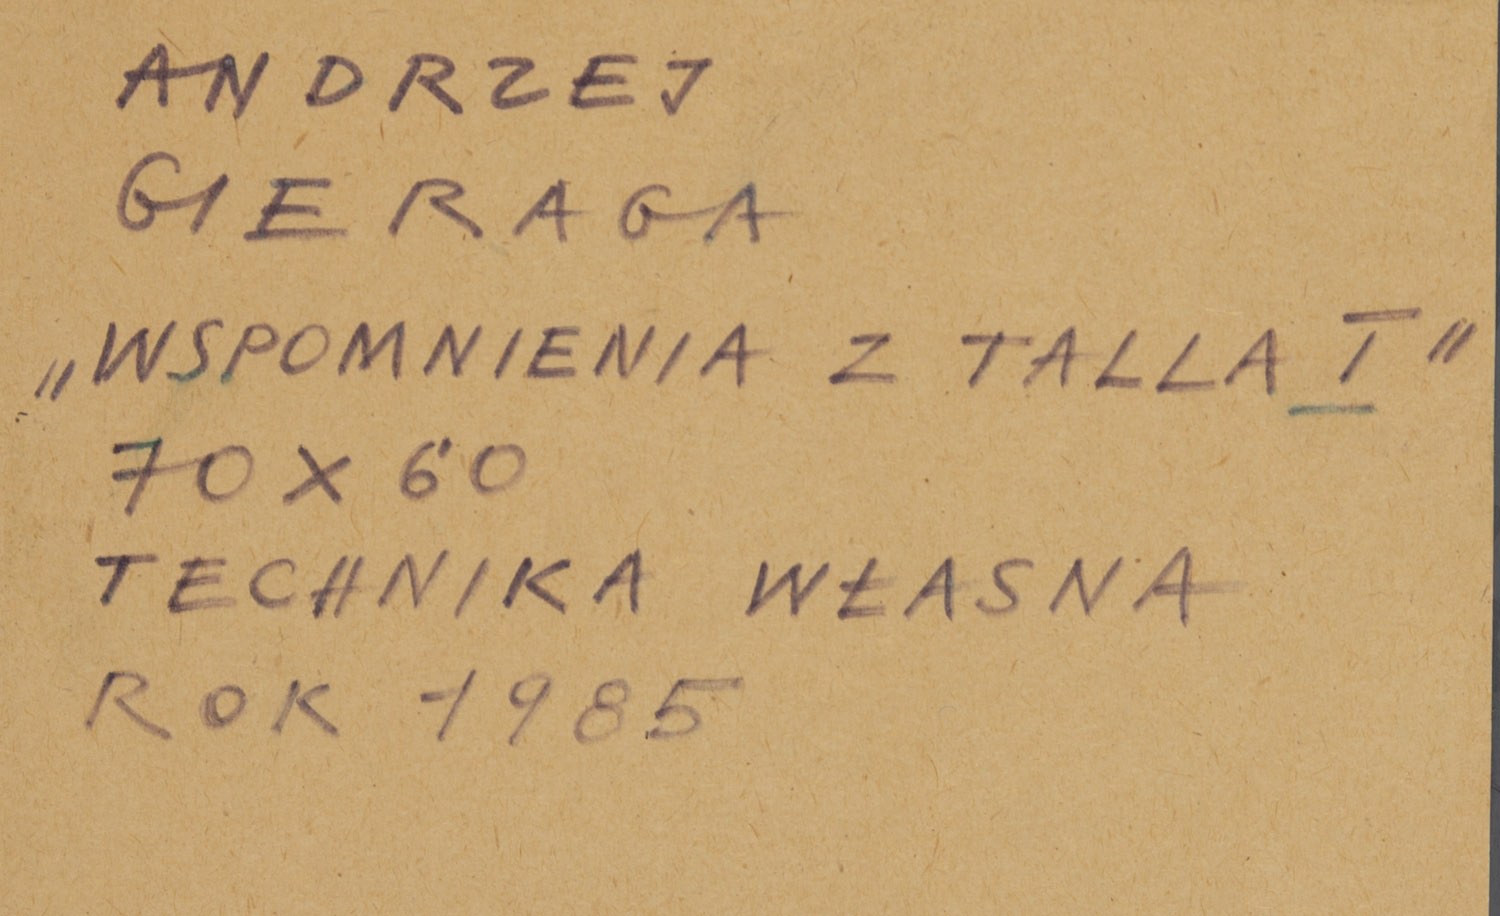 ANDRZEJ
GIERAGA
„WSPOMNIENIA Z TALLA I”
70 X 60
TECHNIKA WŁASNA
ROK 1985